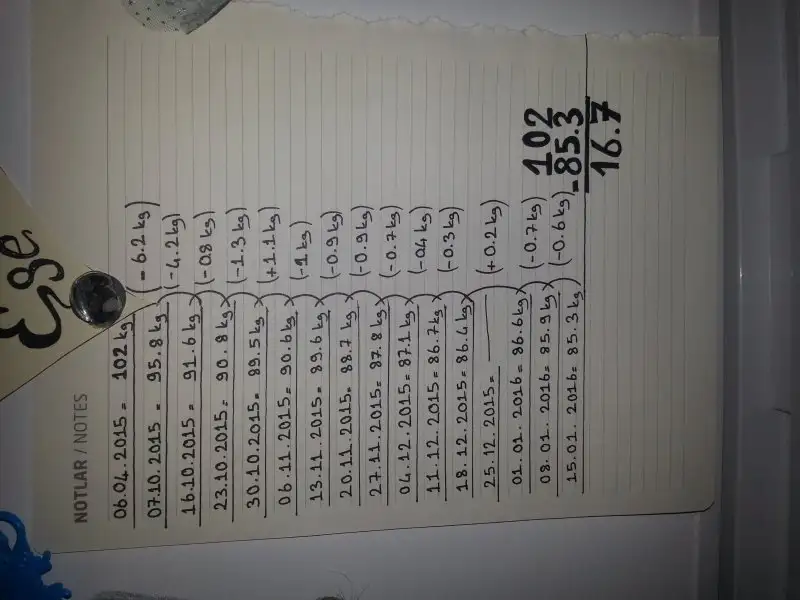 Ege
NOTLAR / NOTES
06.04.2015 = 102 kg
(-6.2 kg)
07.10.2015 = 95.8 kg
(-4.2 kg)
16.10.2015 = 91.6 kg
(-0.8 kg)
23.10.2015 = 90.8 kg
(-1.3 kg)
30.10.2015 = 89.5 kg
(+1.1 kg)
06.11.2015 = 90.6 kg
(-1 kg)
13.11.2015 = 89.6 kg
(-0.9 kg)
20.11.2015 = 88.7 kg
(-0.9 kg)
27.11.2015 = 87.8 kg
(-0.7 kg)
04.12.2015 = 87.1 kg
(-0.4 kg)
11.12.2015 = 86.7 kg
(-0.3 kg)
18.12.2015 = 86.4 kg
25.12.2015 = ———
(+0.2 kg)
01.01.2016 = 86.6 kg
(-0.7 kg)
08.01.2016 = 85.9 kg
(-0.6 kg)
15.01.2016 = 85.3 kg
102
-85.3
16.7